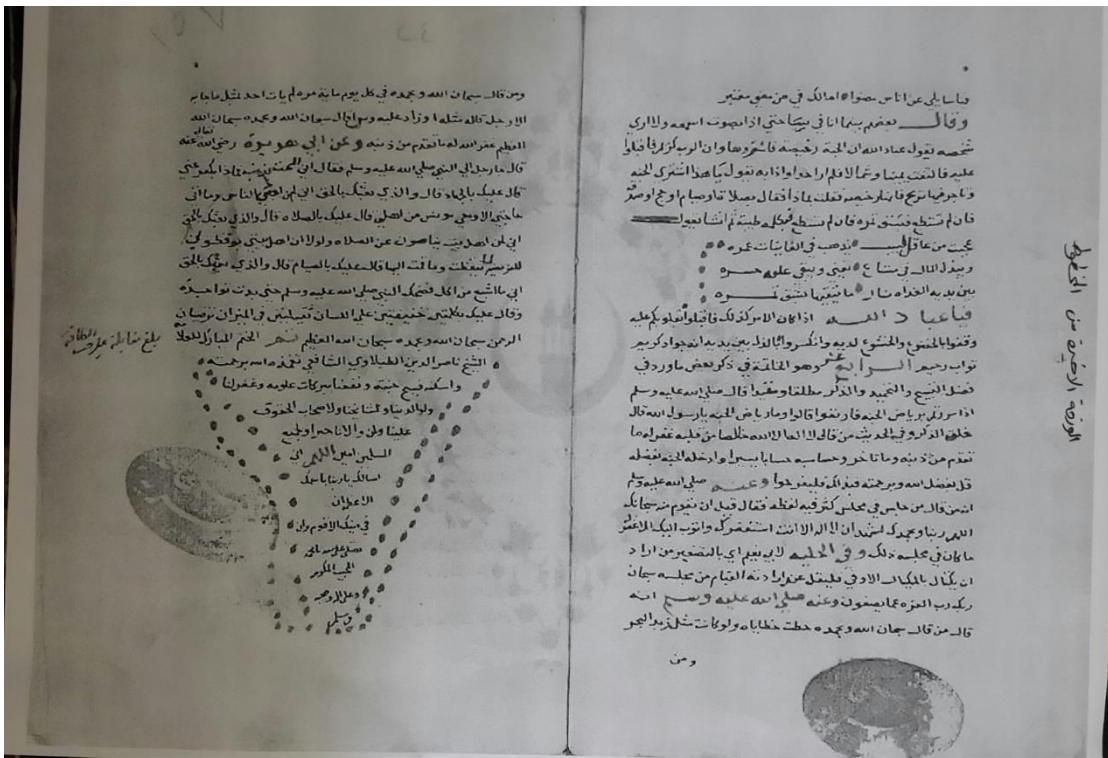 فيا سايلي عن اناس مضوا اما لك في من مضى معتبر
وقال بعضهم بينما انا في سياحتي اذا بصوت اسمعه ولا اري
شخصه يقول عباد الله ان الجنة رخيصة فاشتروها وان الرب كريم فاقبلوا
عليه فالتفت يمينا وشمالا فلم ار احدا واذا به يقول يا هذا اشتري الجنة
وتاجر فيها تربح فانها رخيصة فقلت بماذا فقال بصلاة او صيام او حج او صدقة
فان لم تستطع فبشق تمرة فان لم تستطع فبكلمة طيبة ثم انشا يقول
عجبت من عاقل لبيب يذهب في الفانيات عمره
ويبذل المال في متاع يفنى ويبقى عليه حسره
بين يديه الغداة نار ما يتقيها بشق تمره
فيا عباد الله اذا كان الامر كذلك فاقبلوا بقلوبكم عليه
وقفوا بالخضوع والخشوع لديه وانكسروا بالذل بين يديه انه جواد كريم
تواب رحيم الرابع عشر وهو الخاتمة في ذكر بعض ما ورد في
فضل التسبيح والتحميد والذكر مطلقا ومقيدا قال صلي الله عليه وسلم
اذا مررتم برياض الجنة فارتعوا قالوا وما رياض الجنة يا رسول الله قال
حلق الذكر وفي الحديث من قال لا اله الا الله خالصا من قلبه غفر له ما
تقدم من ذنبه وما تاخر وحاسبه حسابا يسيرا وادخله الجنة بفضله
قل بفضل الله وبرحمته فبذلك فليفرحوا وعنه صلي الله عليه وسلم
انه من قال من جلس في مجلس كثر فيه لغطه فقال قبل ان يقوم منه سبحانك
اللهم ربنا وبحمدك اشهد ان لا اله الا انت استغفرك واتوب اليك الا غفر
ما كان في مجلسه ذلك وفي الحلية لابي نعيم اي بالتصغير من اراد
ان يكتال بالمكيال الاوفي فليقل عند ارادته القيام من مجلسه سبحان
ربك رب العزة عما يصفون وعنه صلي الله عليه وسلم انه
قال من قال سبحان الله وبحمده حطت خطاياه ولو كانت مثل زبد البحر
ومن
الورقة الاخيرة من المخطوط
ومن قال سبحان الله وبحمده في كل يوم ماية مرة لم يات احد بمثل ما جا به
الا رجل قال مثله او زاد عليه ومن قال سبحان الله وبحمده سبحان الله
العظيم غفر الله له ما تقدم من ذنبه وعن ابي هريرة رضي الله تعالى عنه
قال جا رجل الي النبي صلي الله عليه وسلم فقال اني فماذا يكفر عني
قال عليك بالجهاد قال والذي بعثك بالحق اني لمن الناس وما اتي
حاجتي الا ومعي مونس من اهلي قال عليك بالصلاه قال والذي بعثك بالحق
اني لمن اهل بيت ينامون عن الصلاه ولولا ان اهل بيتي يوقظوني
للفريضة لما قمت اليها قال عليك بالصيام قال والذي بعثك بالحق
اني ما اشبع من اكل فضحك النبي صلي الله عليه وسلم حتي بدت نواجذه
وقال عليك بكلمتين خفيفتين علي اللسان ثقيلتين في الميزان ترضيان
الرحمن سبحان الله وبحمده سبحان الله العظيم الختم المبارك للعلامة
الشيخ ناصر الدين الطبلاوي الشافعي تغمده الله برحمته
واسكنه فسيح جنته ونفعنا ببركات علومه وغفر لنا
ولوالدينا ولمشايخنا ولاصحاب الحقوق
علينا ولمن والانا خيرا ولجميع
المسلمين امين اللهم اني
اسالك يا ربنا باسمك
الاعظم ان
في دينك الاقوم وان
تصلي علي سيدنا محمد
الحبيب المكرم
وعلي اله وصحبه
وسلم
بلغ مقابلة علي حسب الطاقة